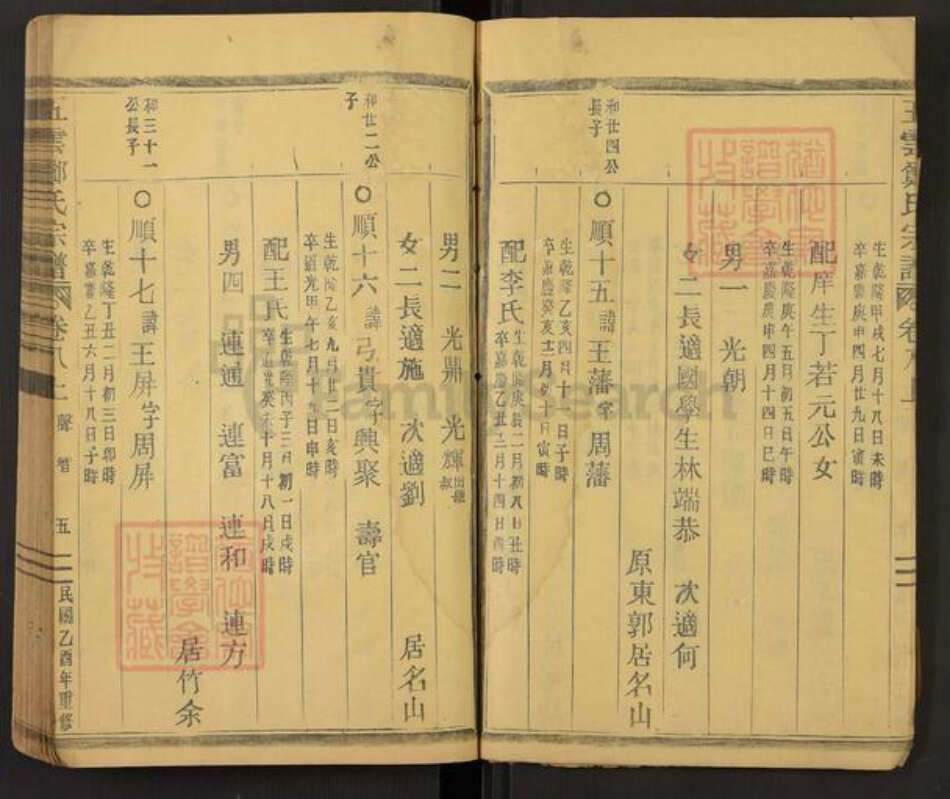 生乾隆甲戌七月十八日未時
卒嘉慶庚申四月廿九日寅時
配庠生丁若元公女
生乾隆庚午五月初五日午時
卒嘉慶庚申四月十四日巳時
男一 光朝
女二長適國學生林端恭 次適何
原東郭居名山
和廿四公
長子
○順十五諱王藩字周藩
生乾隆乙亥四月十一日子時
卒嘉慶癸亥十二月初十日寅時
配李氏
生乾隆庚辰二月初八日丑時
卒嘉慶乙丑三月十四日酉時
男二 光鼎 光輝出繼叔
女二長適施 次適劉
居名山
和廿二公
子
○順十六諱弓貴字興聚 壽官
生乾隆乙亥九月廿二日亥時
卒道光甲午七月十九日申時
配王氏
生乾隆丙子三月初一日戌時
卒道光癸未十月十八日戌時
男四 連通 連富 連和 連方
居竹余
和三十一
公長子
○順十七諱王屏字周屏
生乾隆丁丑二月初三日卯時
卒嘉慶乙丑六月十八日子時
五雲鄭氏宗譜 卷八上 聲 五 民國乙酉年重修
FamilySearch